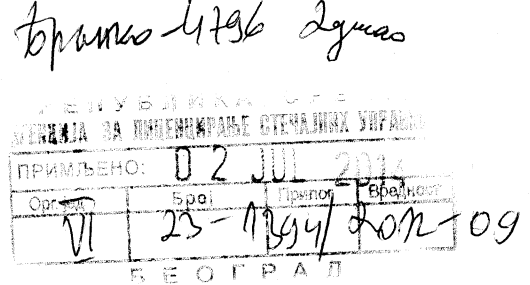 РЕПУБЛИКА СРБ
АГЕНЦИЈА ЗА ЛИЦЕНЦИРАЊЕ СТЕЧАЈНИХ УПРАВ
ПРИМЉЕНО: 02 JUL 2014
Орг.јед Број Прилог Вредност
VI 23-1394/2012-09
БЕОГРАД